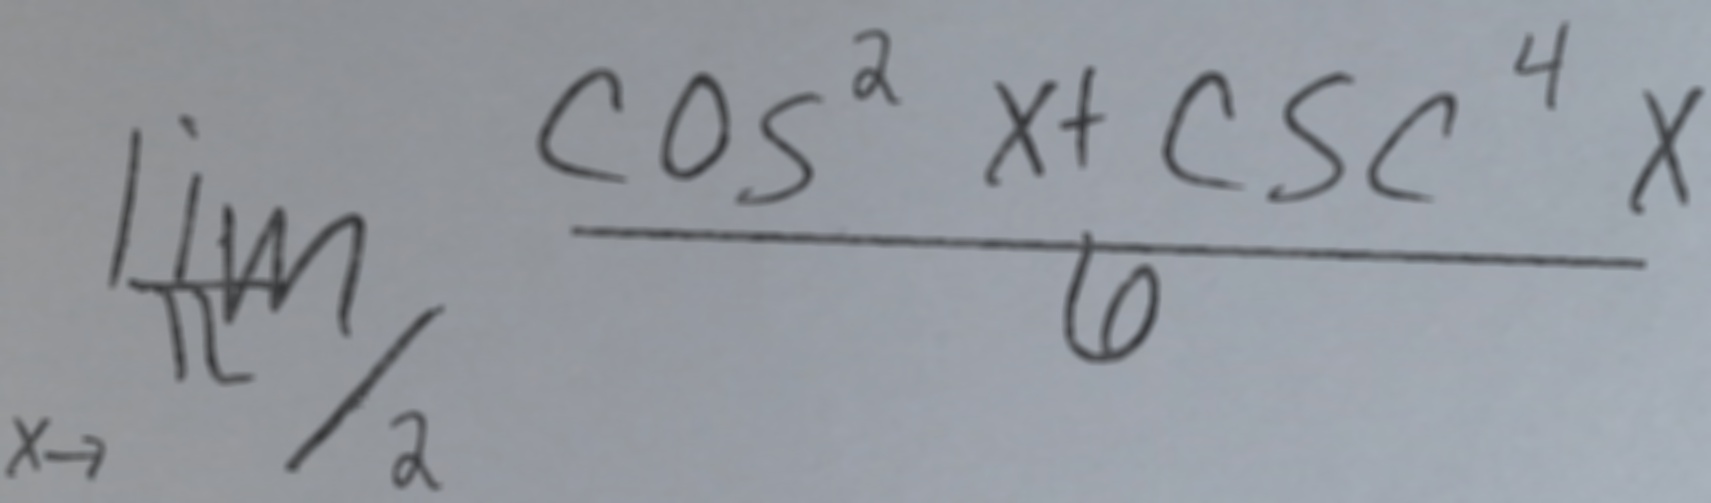 lim x→π/2 (cos² x + csc⁴ x)/6